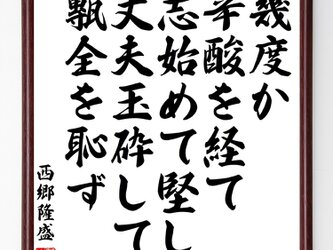 幾度か
辛酸を経て
志始めて堅し
丈夫玉砕して
甎全を恥ず
西郷隆盛